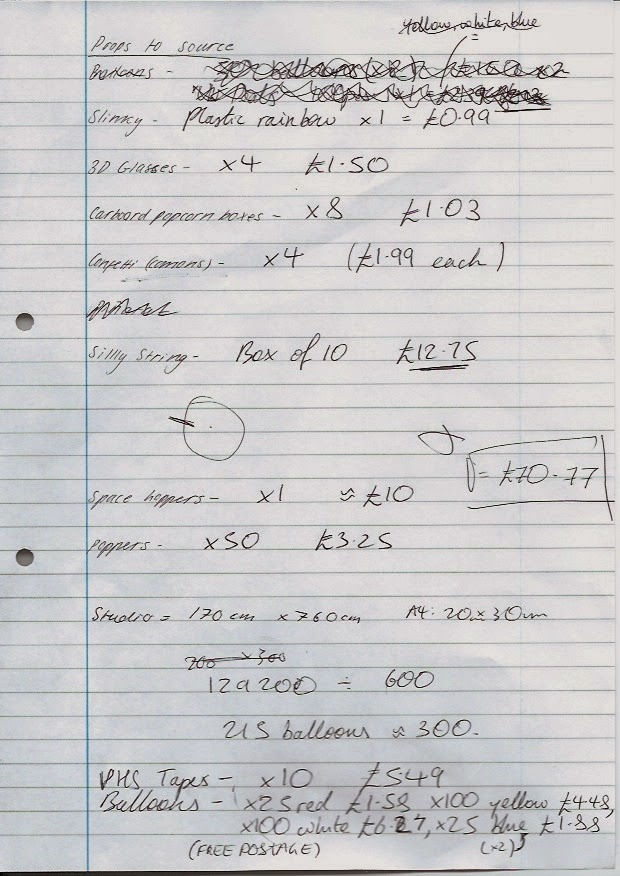 yellow, white, blue
Props to source
Balloons -
Slinky - Plastic rainbow x1 = £0.99
3D Glasses - x4 £1.50
Carboard popcorn boxes - x8 £1.03
Confetti (camons) - x4 (£1.99 each)
Silly String - Box of 10 £12.75
= £70.77
Space hoppers - x1 ≈ £10
Poppers - x50 £3.25
Studio = 170cm x 760cm A4: 20 x 30cm
200 x 300
129200 ÷ 600
215 balloons ≈ 300.
VHS Tapes - x10 £5.49
Balloons - x25 red £1.58 x100 yellow £4.48,
x100 white £6.27, x25 blue £1.88
(FREE POSTAGE) (x2)